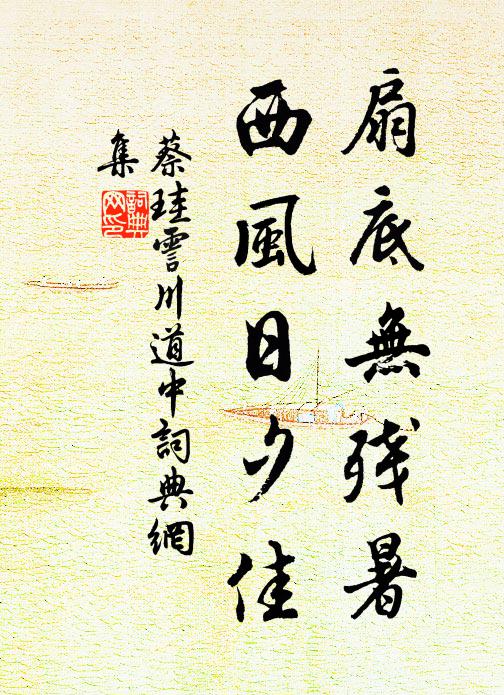 扇底無残暑
西風日夕佳
蔡珪霅川道中詞典網
集
詞典
网印